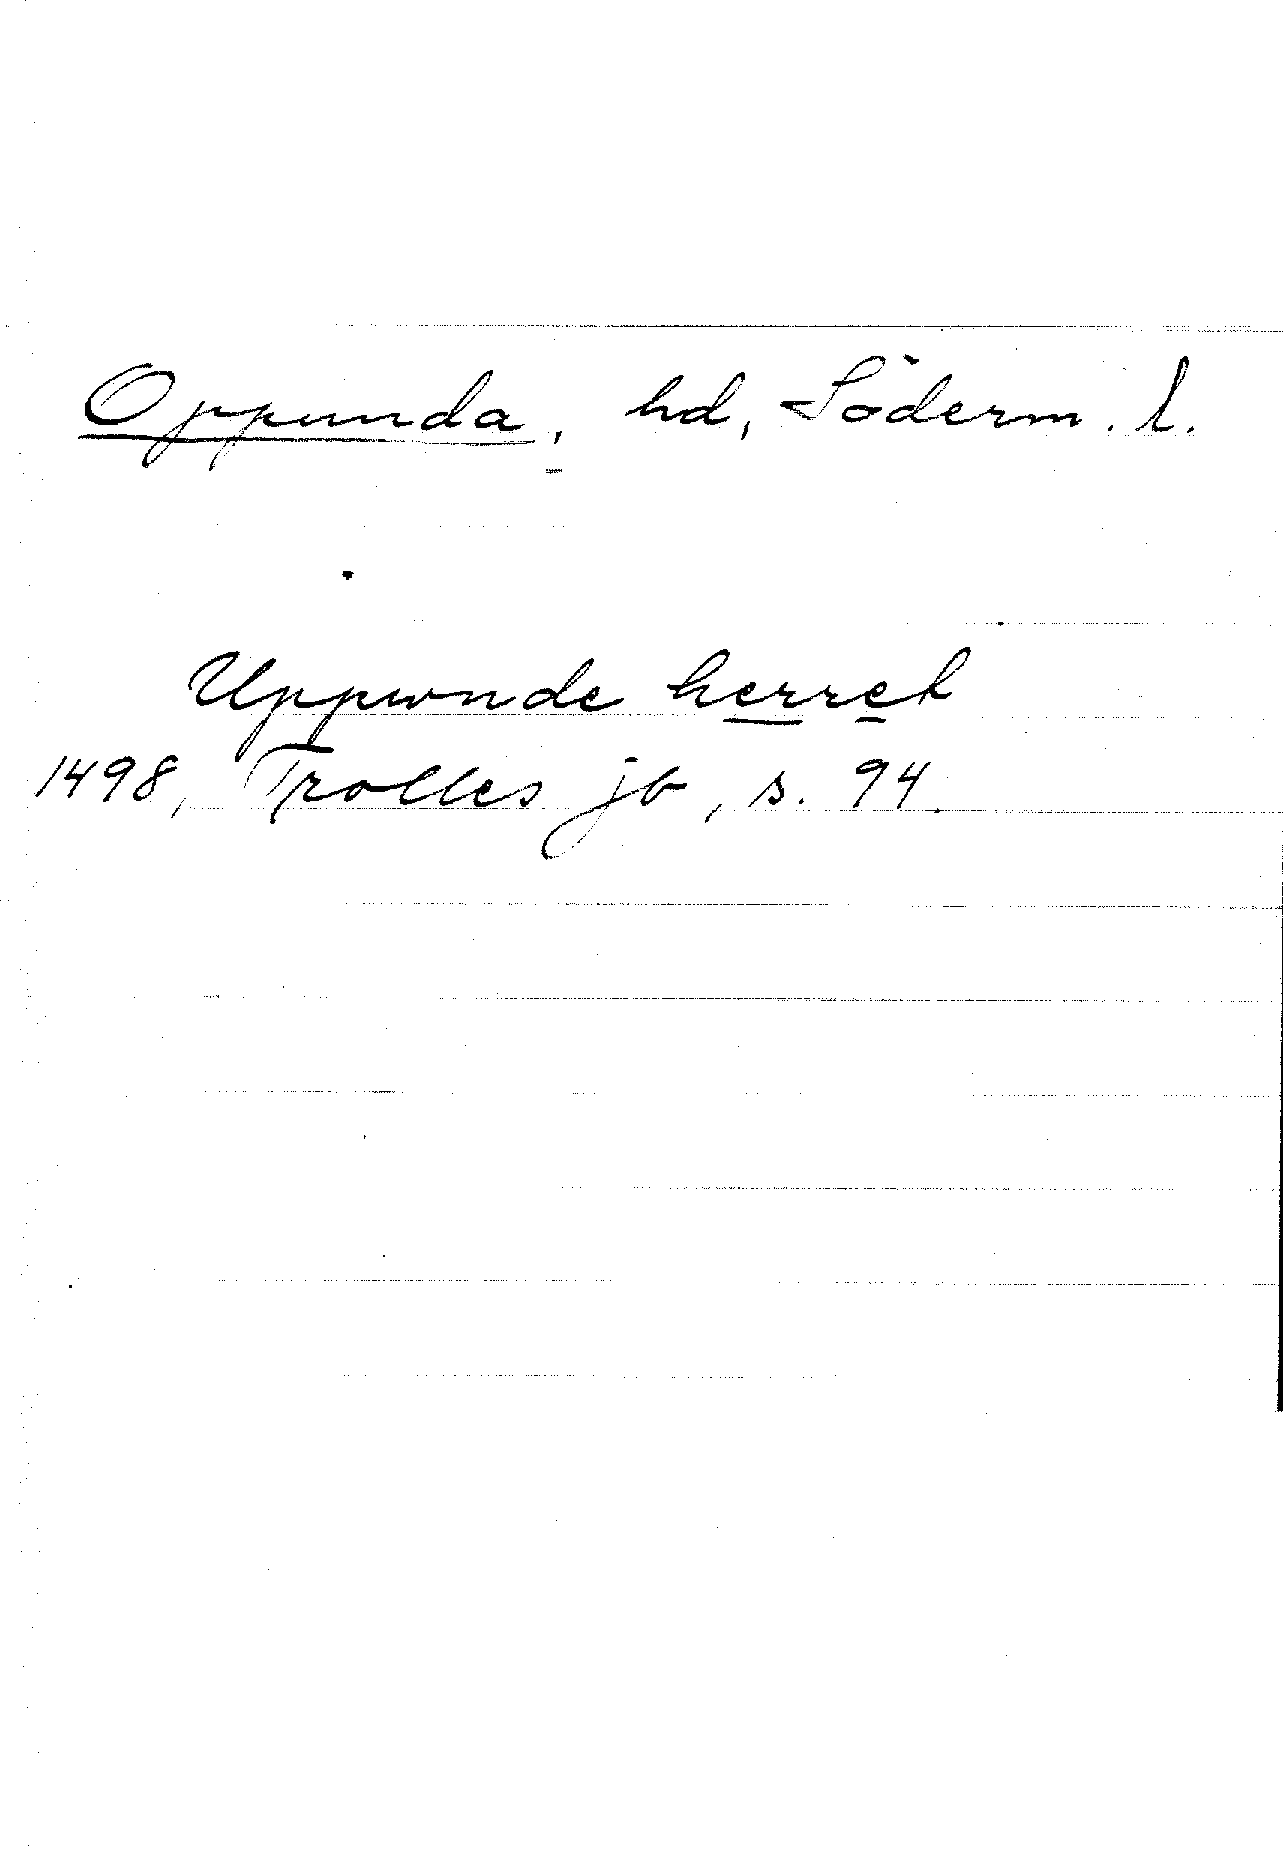 Oppunda, hd, Söderm. l.
Uppwnde herret
1498, Trolles jb, s. 94.